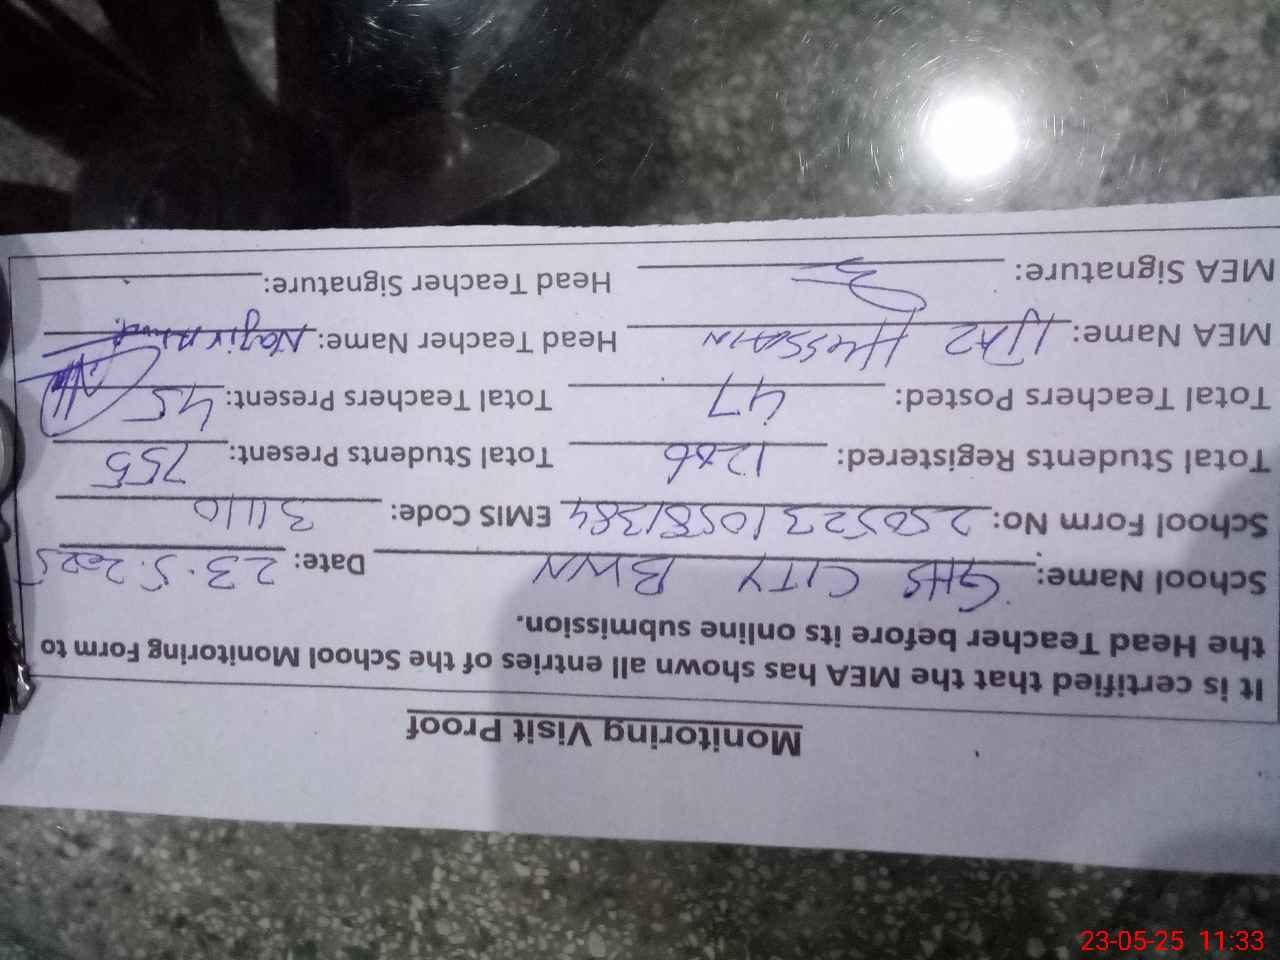 Monitoring Visit Proof
It is certified that the MEA has shown all entries of the School Monitoring Form to
the Head Teacher before its online submission.
School Name: GHS CITY BWN Date: 23.5.2025
School Form No: 25052310581384 EMIS Code: 31110
Total Students Registered: 1286 Total Students Present: 755
Total Teachers Posted: 47 Total Teachers Present: 45
MEA Name: IJAZ HUSSAIN Head Teacher Name: Nazir
MEA Signature: Head Teacher Signature:
23-05-25 11:33